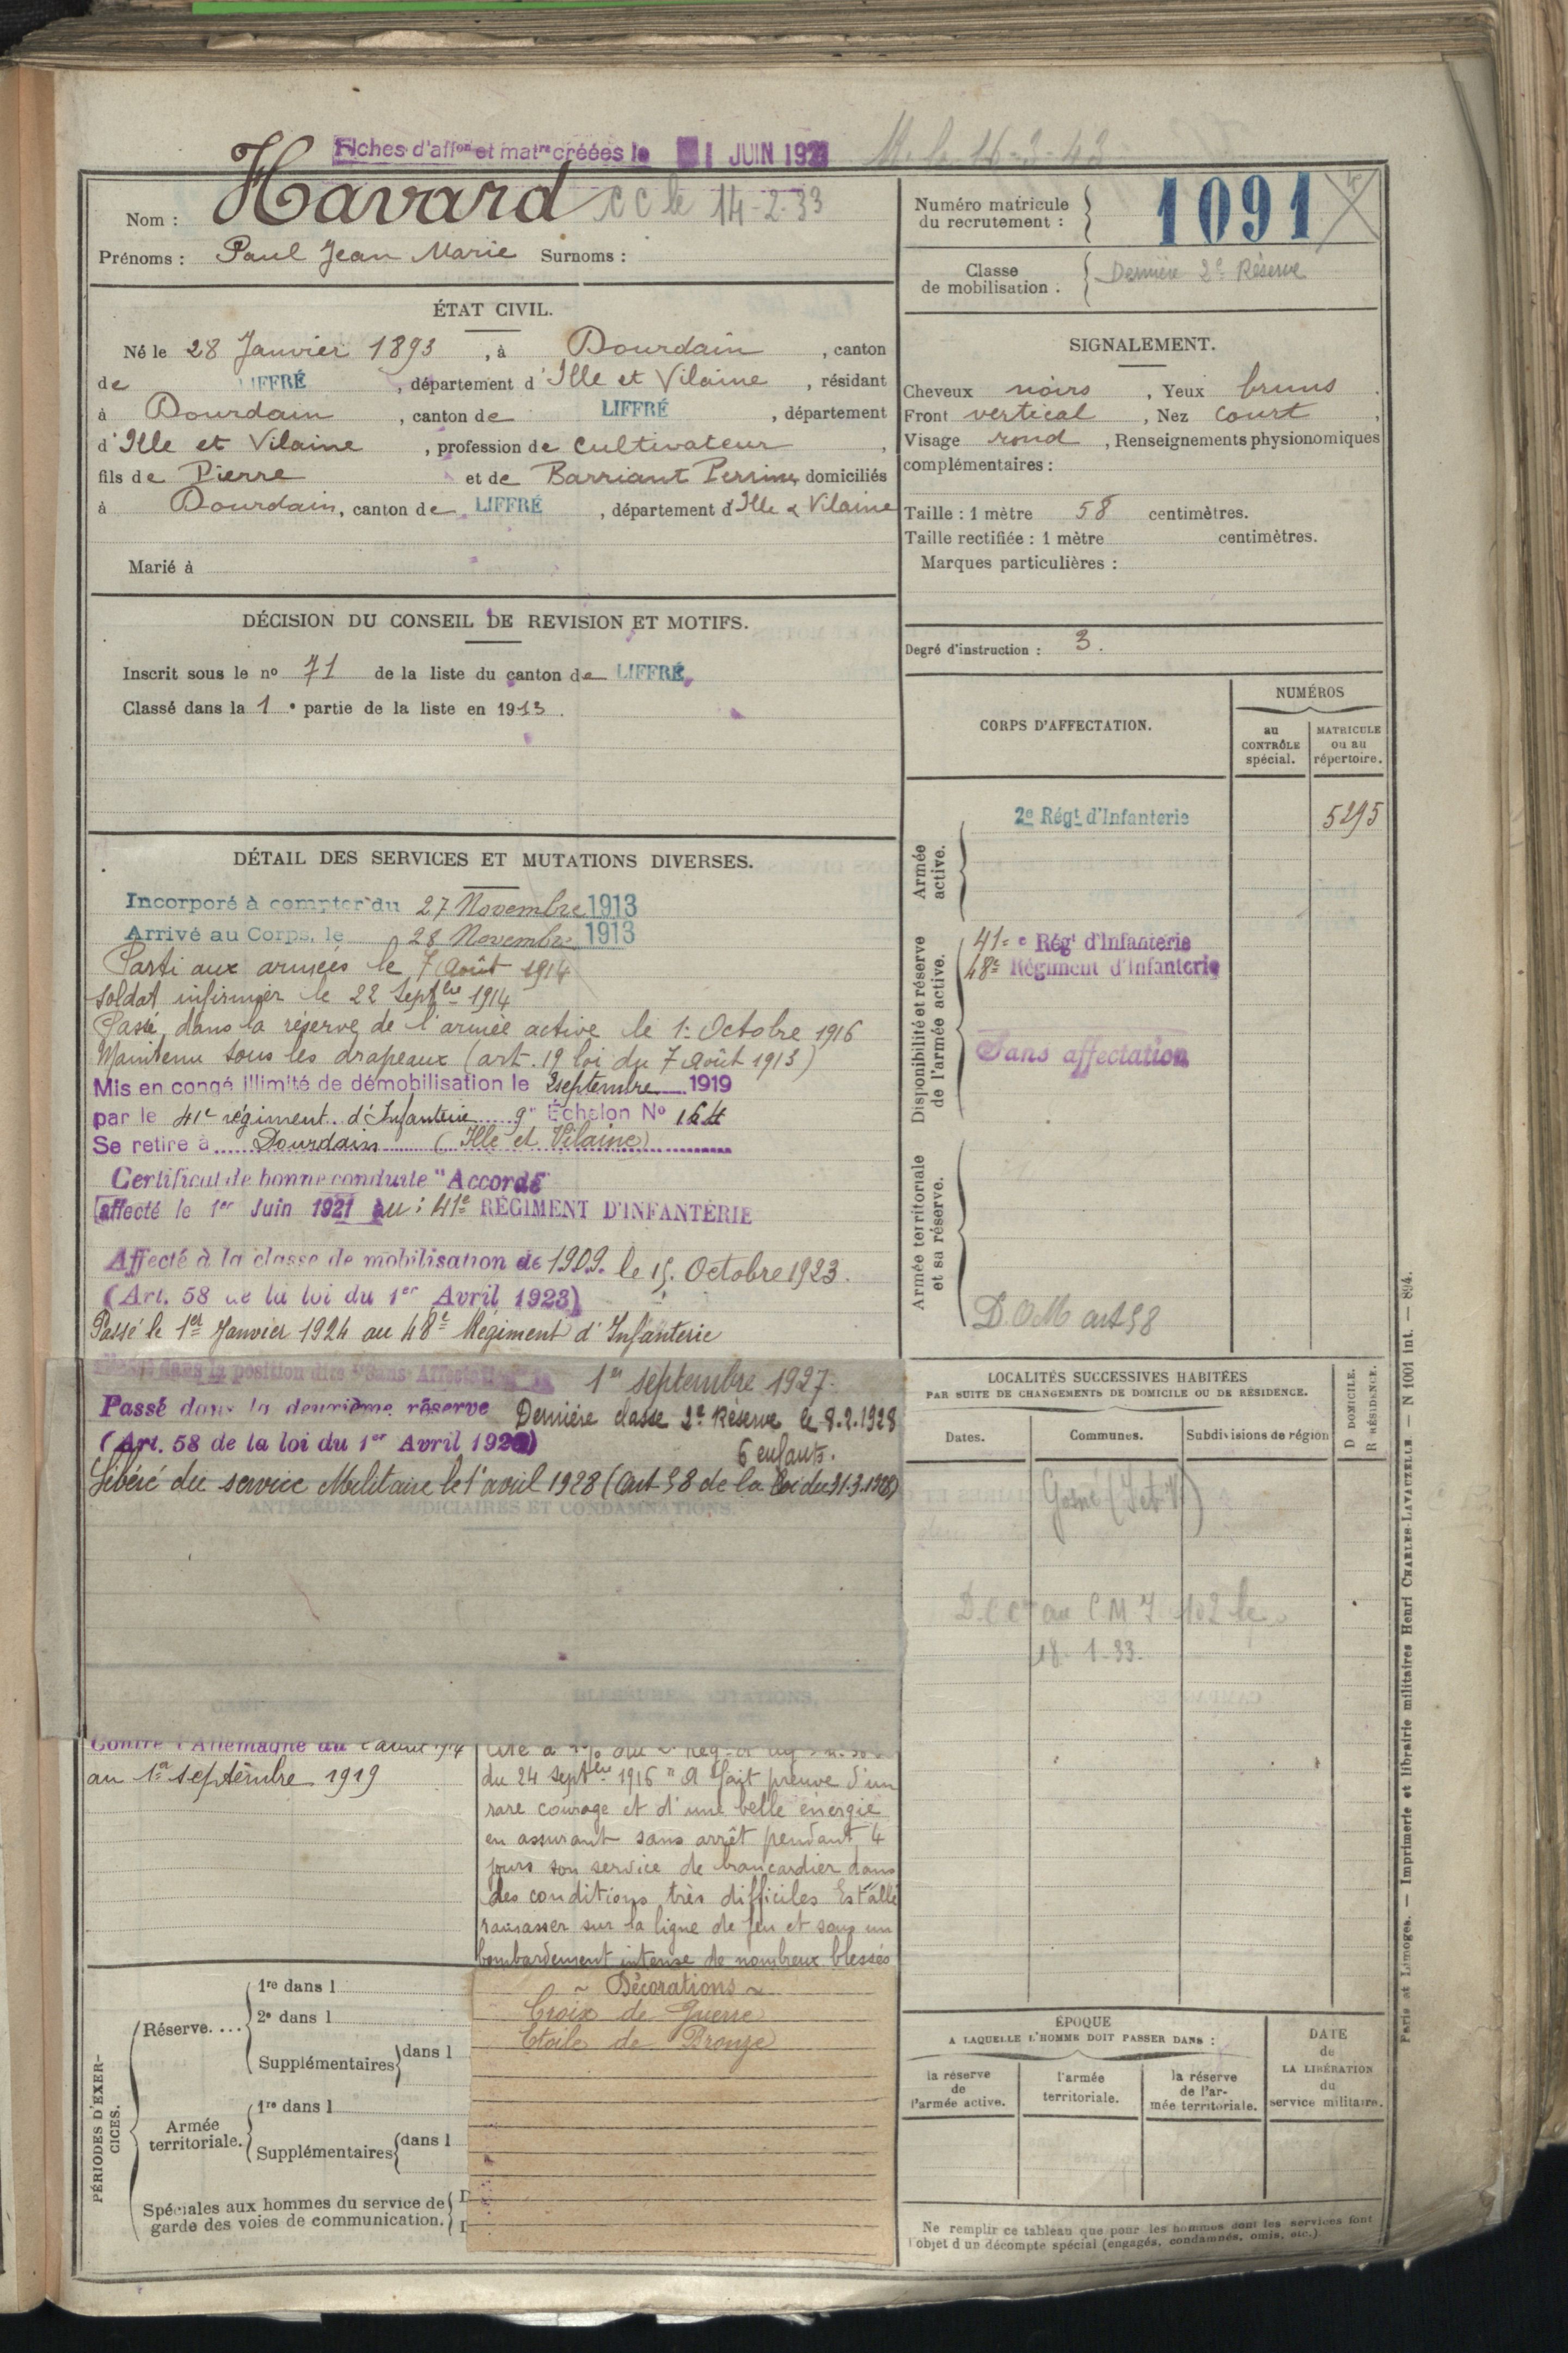 Fiches d'affon et matre créées le 1 JUIN 192
Nom : Havard CC le 14-2-33
Prénoms : Paul Jean Marie Surnoms :
Numéro matricule du recrutement : 1091
Classe de mobilisation : Dernière 2e Réserve
ÉTAT CIVIL.
Né le 28 Janvier 1893, à Dourdain, canton
de LIFFRÉ, département d'Ille et Vilaine, résidant
à Dourdain, canton de LIFFRÉ, département
d'Ille et Vilaine, profession de Cultivateur,
fils de Pierre et de Barriant Perrine domiciliés
à Dourdain, canton de LIFFRÉ, département d'Ille & Vilaine
Marié à
SIGNALEMENT.
Cheveux noirs, Yeux bruns
Front vertical, Nez court,
Visage rond, Renseignements physionomiques
complémentaires :
Taille : 1 mètre 58 centimètres.
Taille rectifiée : 1 mètre centimètres.
Marques particulières :
Degré d'instruction : 3.
DÉCISION DU CONSEIL DE REVISION ET MOTIFS.
Inscrit sous le no 71 de la liste du canton de LIFFRÉ
Classé dans la 1e partie de la liste en 1913.
DÉTAIL DES SERVICES ET MUTATIONS DIVERSES.
Incorporé à compter du 27 Novembre 1913
Arrivé au Corps, le 28 Novembre 1913
Parti aux armées le 7 Août 1914
soldat infirmier le 22 Septbre 1914
Passé dans la réserve de l'armée active le 1er Octobre 1916
Maintenu sous les drapeaux (art. 19 loi du 7 Août 1913)
Mis en congé illimité de démobilisation le 2 septembre 1919
par le 41e régiment d'Infanterie 9e Échelon No 164
Se retire à Dourdain (Ille et Vilaine)
Certificat de bonne conduite "Accordé"
affecté le 1er Juin 1921 au : 41e RÉGIMENT D'INFANTERIE
Affecté à la classe de mobilisation de 1909. le 15 Octobre 1923.
(Art. 58 de la loi du 1er Avril 1923)
Passé le 1er Janvier 1924 au 48e Régiment d'Infanterie
dans la position dite "Sans Affectation" 1er septembre 1927.
Passé dans la deuxième réserve Dernière classe 2e Réserve le 8.2.1928
(Art. 58 de la loi du 1er Avril 192 ) 6 enfants.
Libéré du service Militaire le 1er avril 1928 (art 58 de la loi du 31.3.1928)
ANTÉCÉDENTS JUDICIAIRES ET CONDAMNATIONS.
BLESSURES, CITATIONS,
Contre l'Allemagne du 2 août 1914
au 1er septembre 1919
du 24 septbre 1916 "A fait preuve d'un
rare courage et d'une belle énergie
en assurant sans arrêt pendant 4
jours son service de brancardier dans
des conditions très difficiles Est allé
ramasser sur la ligne de feu et sous un
bombardement intense de nombreux blessés
~ Décorations ~
Croix de Guerre
Etoile de Bronze
PÉRIODES D'EXERCICES.
Réserve....
1re dans l
2e dans l
Supplémentaires dans l
Armée territoriale.
1re dans l
Supplémentaires dans l
Spéciales aux hommes du service de
garde des voies de communication.
CORPS D'AFFECTATION.
NUMÉROS
au CONTRÔLE spécial.
MATRICULE ou au répertoire.
Armée active.
2e Régt d'Infanterie 5295
Disponibilité et réserve de l'armée active.
41e Régt d'Infanterie
48e Régiment d'Infanterie
Sans affectation
Armée territoriale et sa réserve.
D.O.M art 58
LOCALITÉS SUCCESSIVES HABITÉES
PAR SUITE DE CHANGEMENTS DE DOMICILE OU DE RÉSIDENCE.
Dates. Communes. Subdivisions de région
D DOMICILE.
R RÉSIDENCE.
Gosné (I et V)
18-1-33.
ÉPOQUE
A LAQUELLE L'HOMME DOIT PASSER DANS :
la réserve de l'armée active.
l'armée territoriale.
la réserve de l'armée territoriale.
DATE de LA LIBÉRATION du service militaire.
Ne remplir ce tableau que pour les hommes dont les services font
l'objet d'un décompte spécial (engagés, condamnés, omis, etc.).
Paris et Limoges. — Imprimerie et librairie militaires Henri CHARLES-LAVAUZELLE. — N 1001 int. — 814.